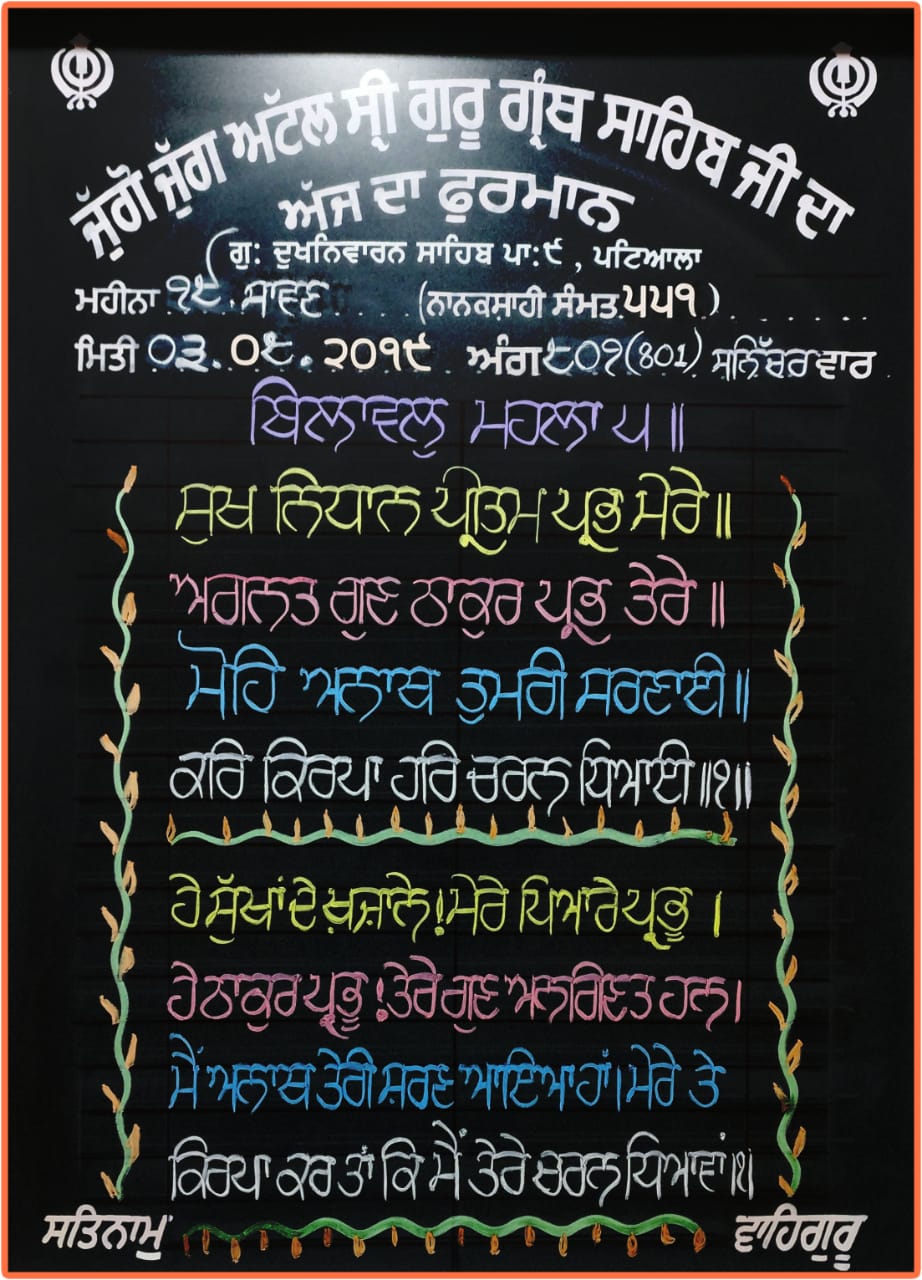 ਜੁੱਗੋ ਜੁੱਗ ਅਟੱਲ ਸ੍ਰੀ ਗੁਰੂ ਗ੍ਰੰਥ ਸਾਹਿਬ ਜੀ ਦਾ
ਅੱਜ ਦਾ ਫੁਰਮਾਨ
(ਗੁ: ਦੁਖਨਿਵਾਰਨ ਸਾਹਿਬ ਪਾ:੯, ਪਟਿਆਲਾ
ਮਹੀਨਾ ੧੯. ਸਾਵਣ (ਨਾਨਕਸ਼ਾਹੀ ਸੰਮਤ ੫੫੧)
ਮਿਤੀ ੦੩.੦੮.੨੦੧੯ ਅੰਗ ੮੦੧(801) ਸਨਿੱਚਰ ਵਾਰ
ਬਿਲਾਵਲੁ ਮਹਲਾ ੫॥
ਸੁਖ ਨਿਧਾਨ ਪ੍ਰੀਤਮ ਪ੍ਰਭ ਮੇਰੇ॥
ਅਗਨਤ ਗੁਣ ਠਾਕੁਰ ਪ੍ਰਭ ਤੇਰੇ॥
ਮੋਹਿ ਅਨਾਥ ਤੁਮਰੀ ਸਰਣਾਈ॥
ਕਰਿ ਕਿਰਪਾ ਹਰਿ ਚਰਨ ਧਿਆਈ॥੧॥
ਹੇ ਸੁੱਖਾਂ ਦੇ ਖ਼ਜ਼ਾਨੇ! ਮੇਰੇ ਪਿਆਰੇ ਪ੍ਰਭੂ।
ਹੇ ਠਾਕੁਰ ਪ੍ਰਭੂ! ਤੇਰੇ ਗੁਣ ਅਨਗਿਣਤ ਹਨ।
ਮੈਂ ਅਨਾਥ ਤੇਰੀ ਸ਼ਰਣ ਆਇਆ ਹਾਂ। ਮੇਰੇ ਤੇ
ਕਿਰਪਾ ਕਰ ਤਾਂ ਕਿ ਮੈਂ ਤੇਰੇ ਚਰਨ ਧਿਆਵਾਂ।੧।
ਸਤਿਨਾਮੁ ਵਾਹਿਗੁਰੂ